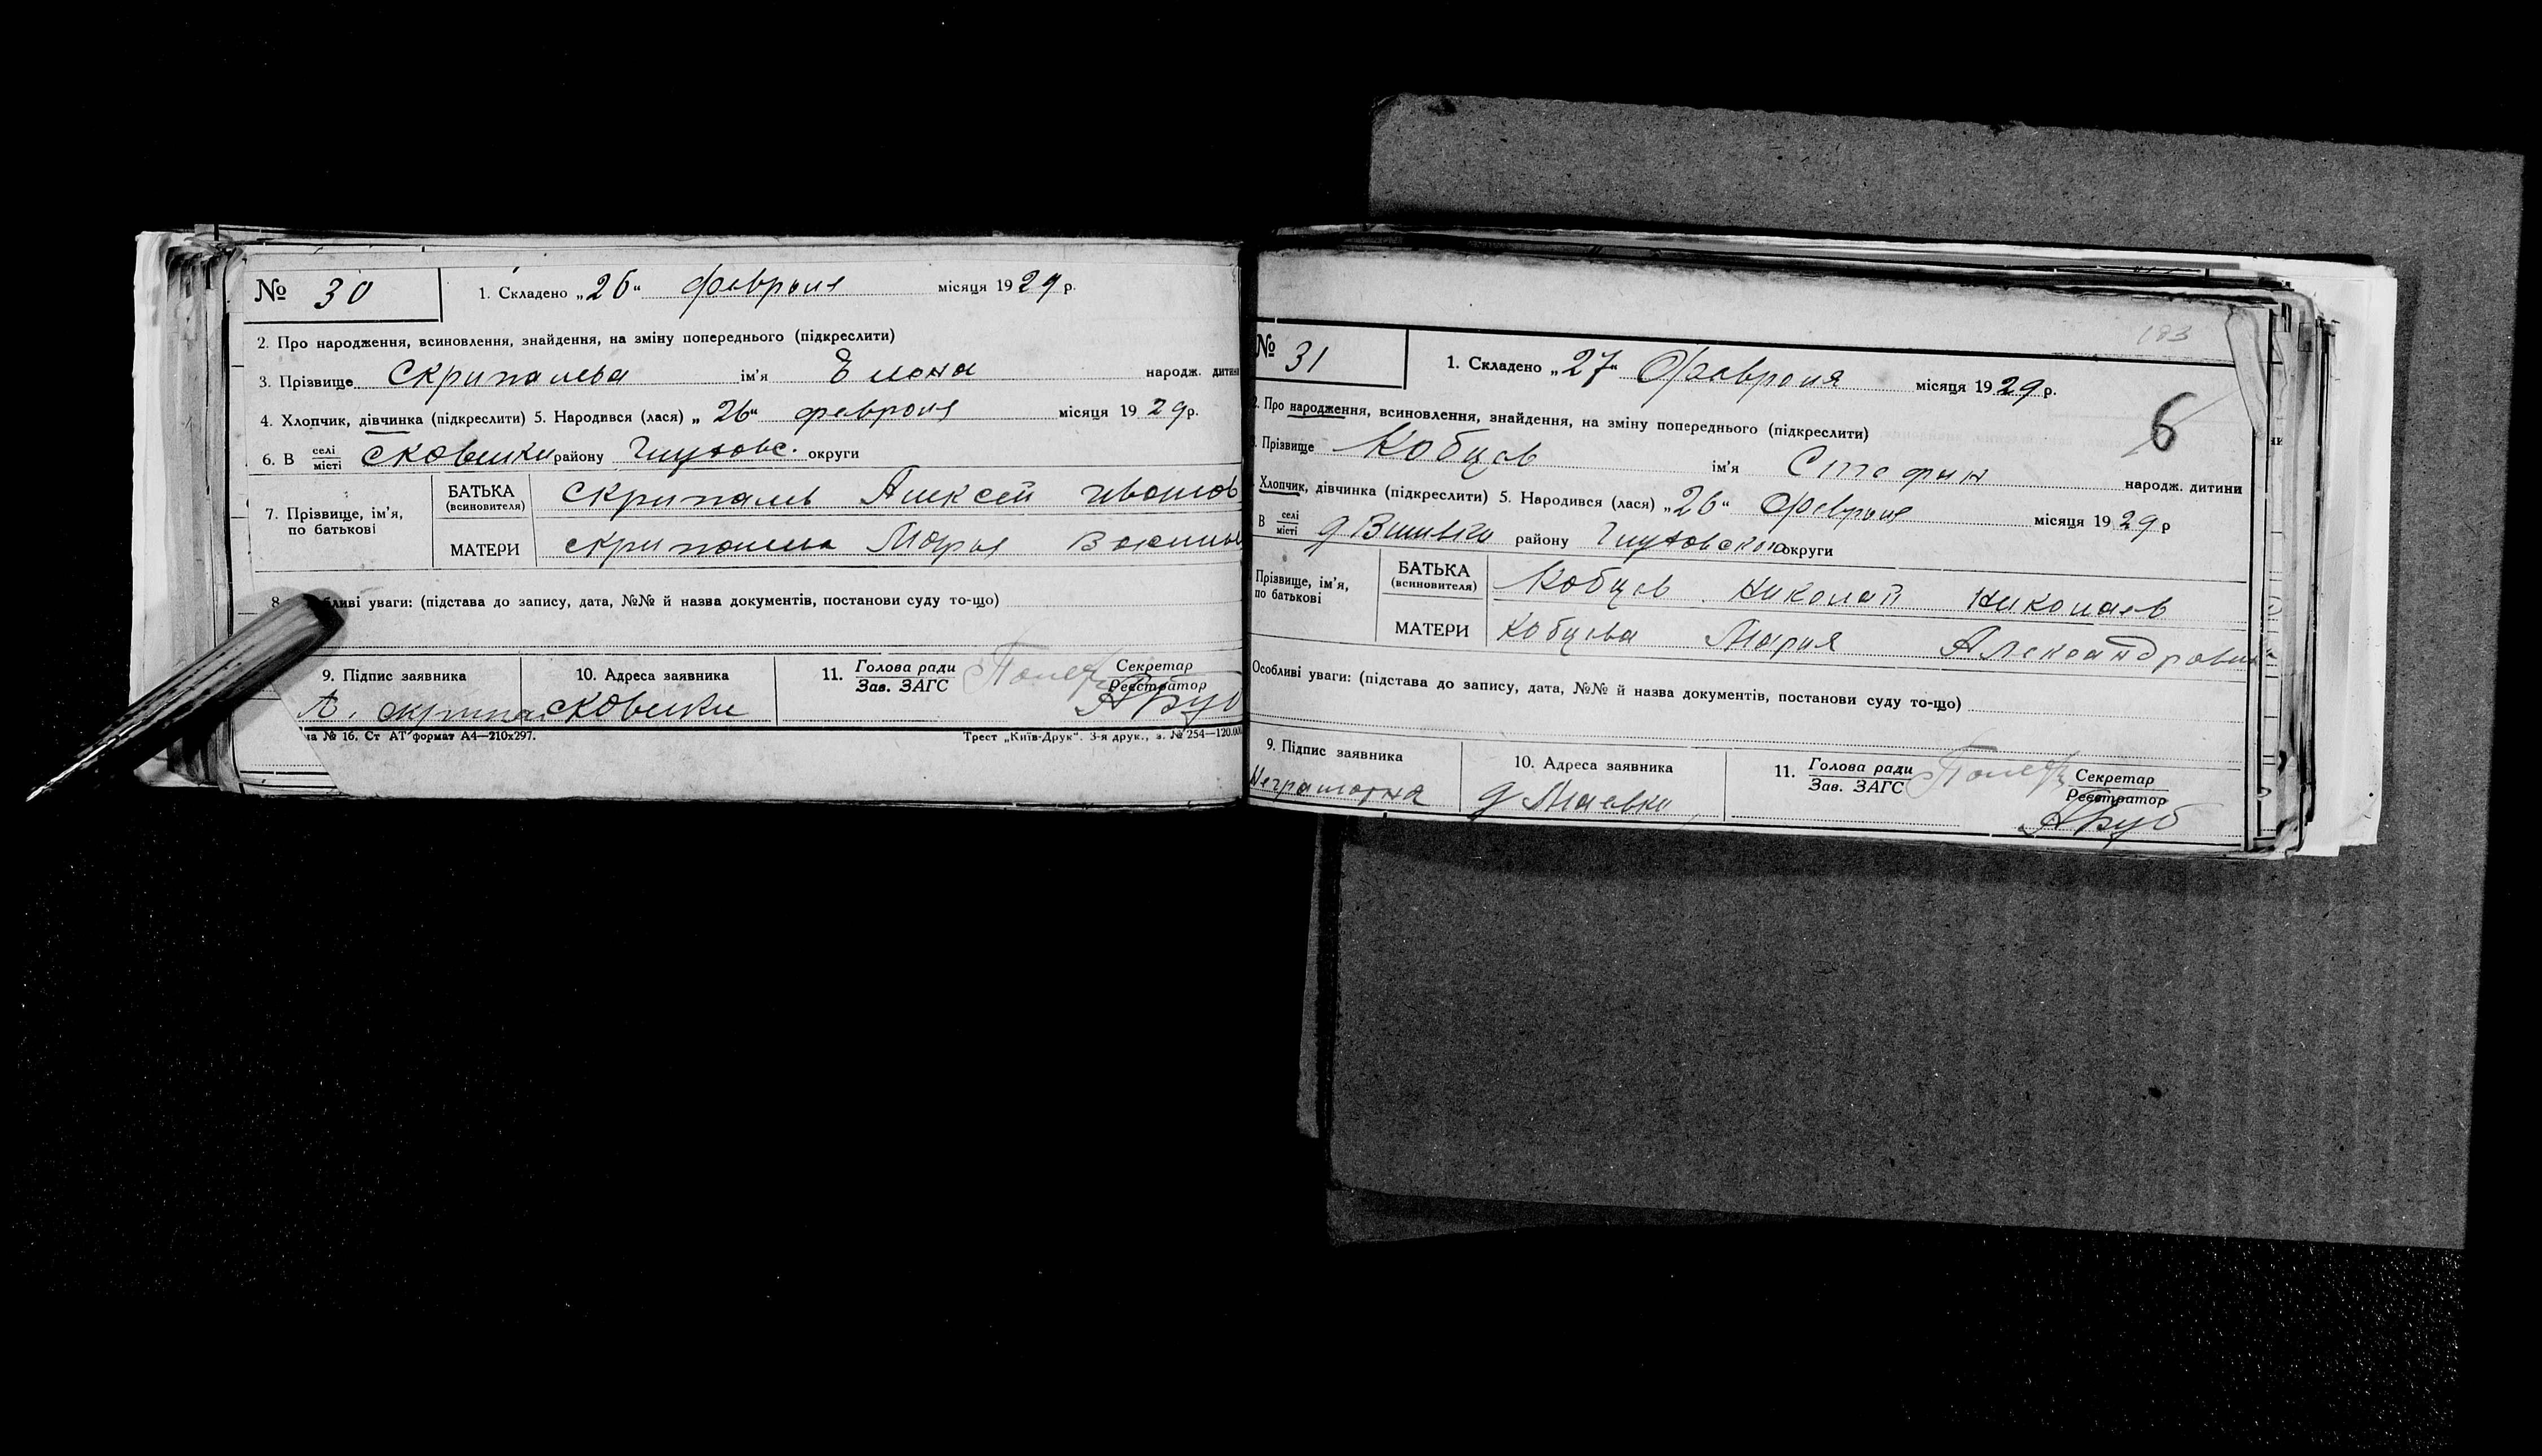 № 30 1. Складено „26“ февраля місяця 1929 р.
2. Про народження, всиновлення, знайдення, на зміну попереднього (підкреслити)
3. Прізвище Скрипалева ім’я Елена народж. дитини
4. Хлопчик, дівчинка (підкреслити) 5. Народився (лася) „26“ февраля місяця 1929 р.
6. В селі місті району Глуховс. округи
7. Прізвище, ім’я, по батькові
БАТЬКА (всиновителя) Скрипаль Алексей Иванов
МАТЕРИ Марья
8. бливі уваги: (підстава до запису, дата, №№ й назва документів, постанови суду то-що)
9. Підпис заявника 10. Адреса заявника 11. Голова ради Зав. ЗАГС Секретар Реєстратор
А.
на № 16. Ст АТ формат А4—210х297. Трест „Київ-Друк“. 3-я друк., з. № 254—120.00
183
№ 31 1. Складено „27“ Февраля місяця 1929 р.
6
2. Про народження, всиновлення, знайдення, на зміну попереднього (підкреслити)
Прізвище Кобцов ім’я Стефан народж. дитини
Хлопчик, дівчинка (підкреслити) 5. Народився (лася) „26“ Февраля місяця 1929 р
В селі місті д району Глуховского округи
Прізвище, ім’я, по батькові
БАТЬКА (всиновителя) Кобцов Николай Николаев
МАТЕРИ Кобцова Мария Александровна
Особливі уваги: (підстава до запису, дата, №№ й назва документів, постанови суду то-що)
9. Підпис заявника 10. Адреса заявника 11. Голова ради Зав. ЗАГС Секретар Реєстратор
Неграмотна д